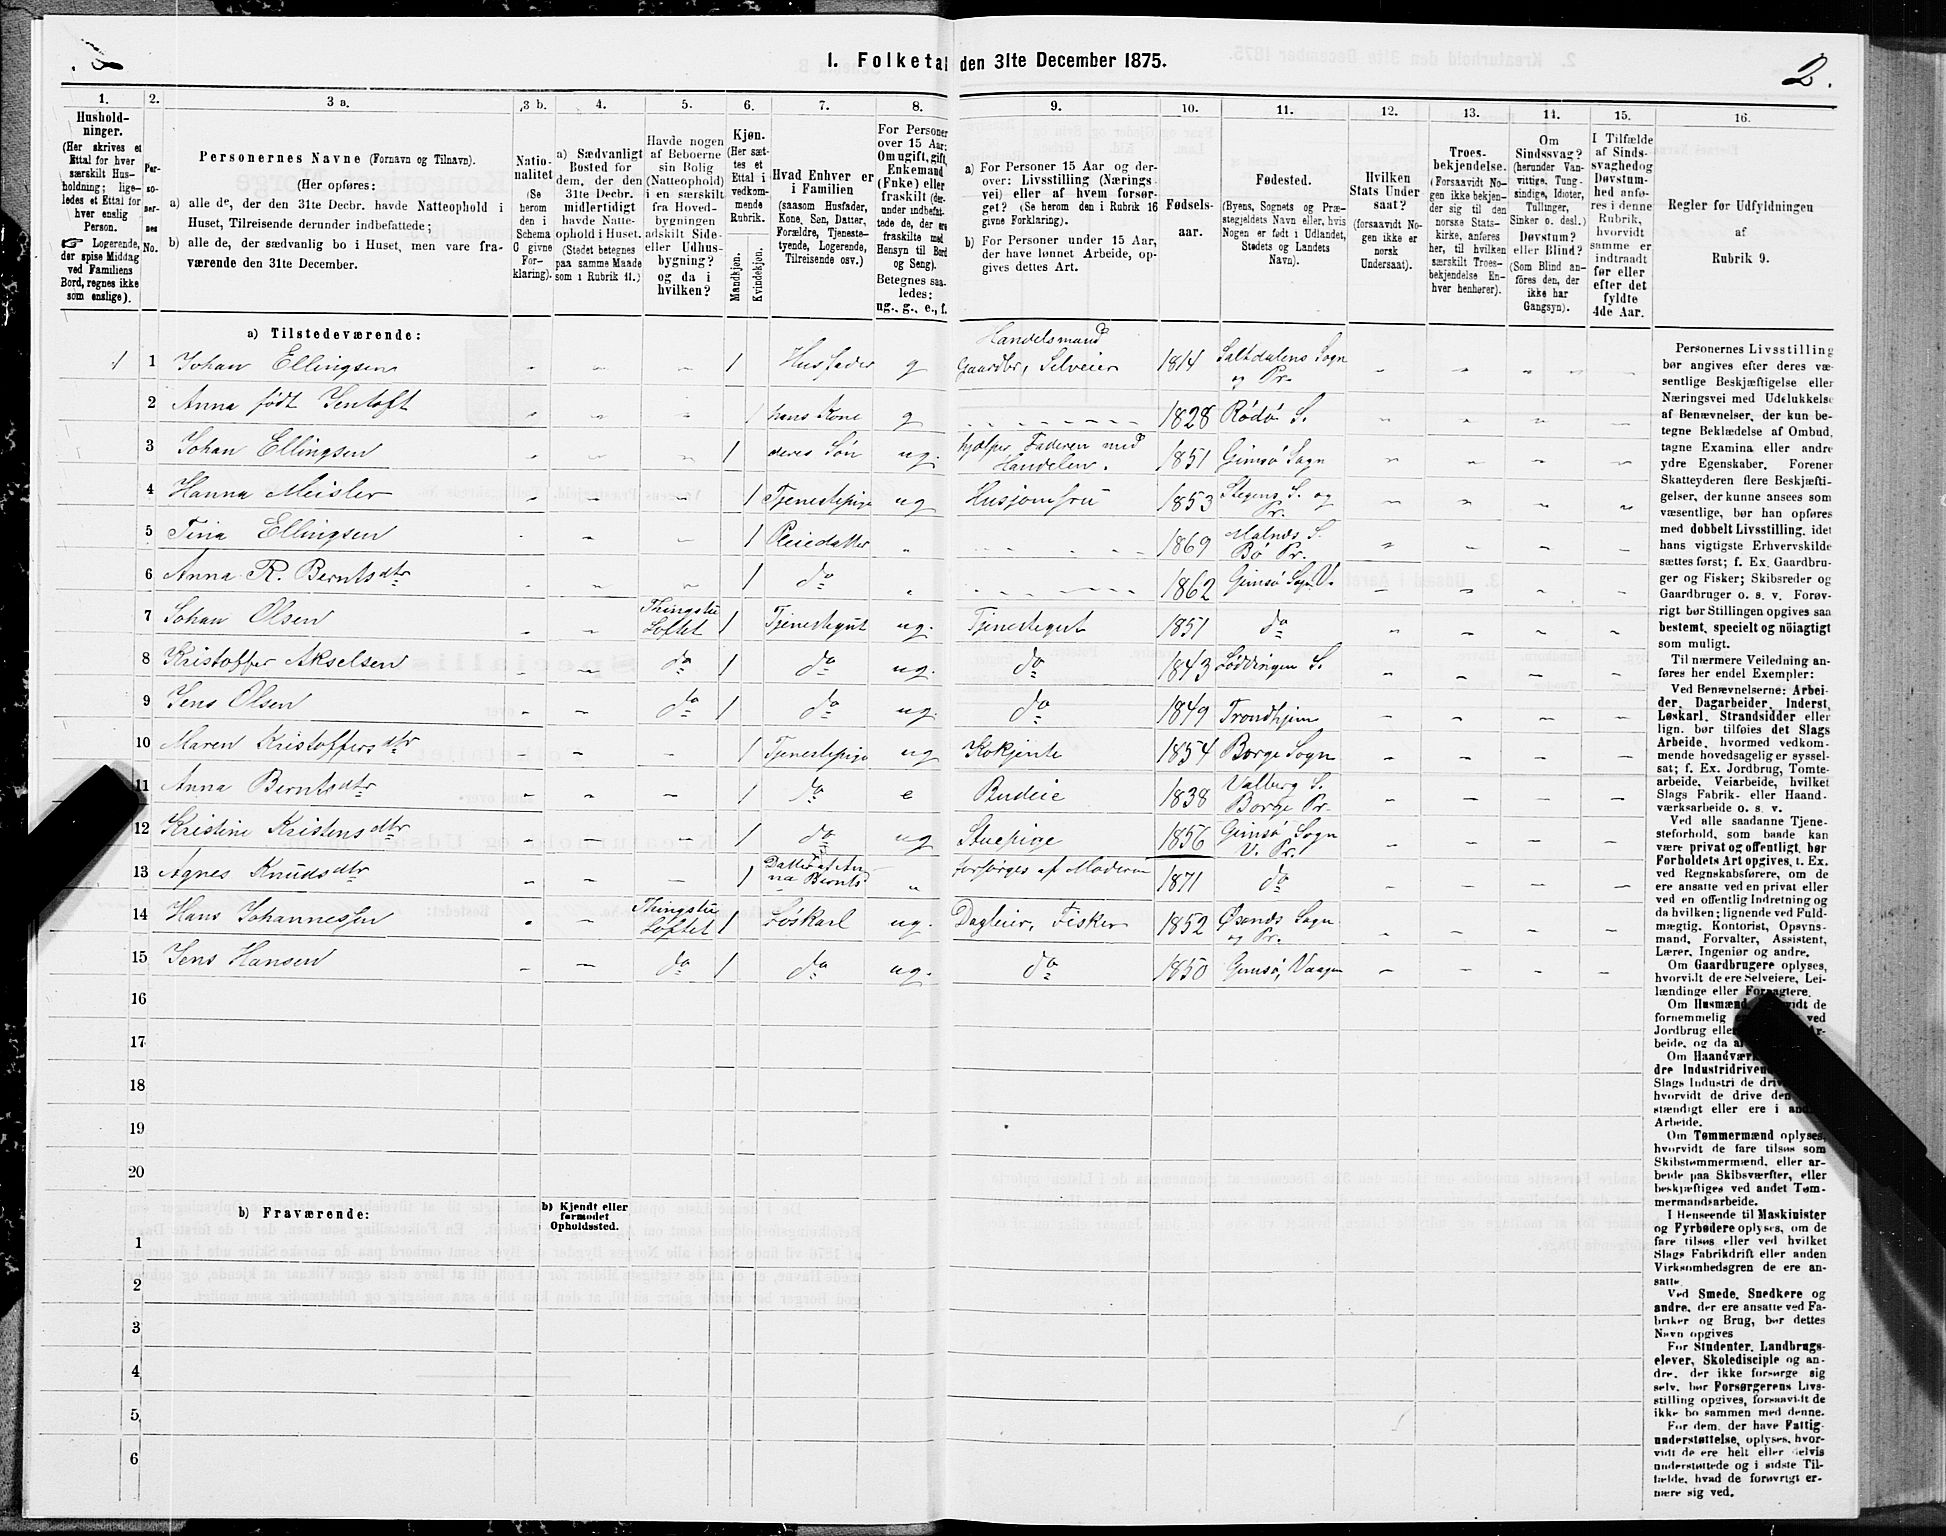 1. Folketal den 31te December 1875.
2.
1.
Hushold-
ninger.
(Her skrives et
Ettal for hver
særskilt Hus-
holdning; lige-
ledes et Ettal for
hver enslig
Person.
☞ Logerende,
der spise Middag
ved Familiens
Bord, regnes ikke
som enslige).
2.
Per-
so-
ner-
nes
No.
3 a.
Personernes Navne (Fornavn og Tilnavn).
(Her opføres:
a) alle de, der den 31te Decbr. havde Natteophold i
Huset, Tilreisende derunder indbefattede;
b) alle de, der sædvanlig bo i Huset, men vare fra-
værende den 31te December.
3 b.
Natio-
nalitet
(Se
herom
den i
Schema
C givne
For-
klaring).
4.
a) Sædvanligt
Bosted for
dem, der den
31te Decbr.
midlertidigt
havde Natte-
ophold i Huset.
(Stedet betegnes
paa samme Maade
som i Rubrik 11.)
5.
Havde nogen
af Beboerne
sin Bolig
(Natteophold)
i en særskilt
fra Hoved-
bygningen
adskilt Side-
eller Udhus-
bygning?
og da i
hvilken?
6.
Kjøn.
(Her sæt-
tes et
Ettal i
vedkom-
mende
Rubrik.
Mandkjøn.
Kvindekjøn.
7.
Hvad Enhver er
i Familien
(saasom Husfader,
Kone, Søn, Datter,
Forældre, Tjeneste-
tyende, Logerende,
Tilreisende osv.)
8.
For Personer
over 15 Aar:
Om ugift, gift,
Enkemand
(Enke) eller
fraskilt (der-
under indbefat-
tede de, der ere
fraskilte med
Hensyn til Bord
og Seng).
Betegnes saa-
ledes:
ug., g., e., f.
9.
a) For Personer 15 Aar og der-
over: Livsstilling (Nærings-
vei) eller af hvem forsør-
get? (Se herom den i Rubrik 16
givne Forklaring).
b) For Personer under 15 Aar,
der have lønnet Arbeide, op-
gives dettes Art.
10.
Fødsels-
aar.
11.
Fødested.
(Byens, Sognets og Præ-
stegjeldets Navn eller, hvis
Nogen er født i Udlandet,
Stedets og Landets
Navn).
12.
Hvilken
Stats Under
saat?
(forsaavidt No-
gen ikke er
norsk
Undersaat).
13.
Troes-
bekjendelse.
(Forsaavidt No-
gen ikke bekjen-
der sig til den
norske Stats-
kirke, anføres
her, til hvilken
særskilt Troes-
bekjendelse En-
hver henhører).
14.
Om
Sindssvag?
(herunder Van-
vittige, Tung-
sindige, Idioter,
Tullinger,
Sinker o. desl.)
Døvstum?
eller Blind?
(Som Blind an-
føres den, der
ikke har
Gangsyn).
15.
I Tilfælde
af Sinds-
svaghed og
Døvstum-
hed anfø-
res i denne
Rubrik,
hvorvidt
samme er
indtraadt
før eller
efter det
fyldte
4de Aar.
16.
Regler for Udfyldningen
af
Rubrik 9.
a) Tilstedeværende:
1 1 Johan Ellingsen - - - 1 Husfader g Handelsmand Gaardbr, Selveier 1814 Saltdalens Sogn og Pr. - - - -
2 Anna født Jentoft - - - 1 hans Kone g - - - 1828 Rødø S. - - - -
3 Johan Ellingsen - - - 1 deres Søn ug. hjælper Faderen med Handelen. 1851 Gimsø Sogn - - - -
4 Hanna Meisler - - - 1 Tjenestepige ug Husjomfru 1853 Stegens S. og Pr. - - - -
5 Tina Ellingsen - - - 1 Pleiedatter " - - - 1869 Malnæs S. Bø Pr. - - - -
6 Anna R. Berntsdtr - - - 1 do " - - - 1862 Gimsø Sogn V. - - - -
7 Johan Olsen - - Thingstu Loftet 1 Tjenestegut ug. Tjenestegut 1851 do - - - -
8 Kristoffer Akselsen - - do 1 do ug. do 1843 Løddingen S. - - - -
9 Jens Olsen - - do 1 do ug. do 1849 Trondhjem - - - -
10 Maren Kristoffersdtr - - - 1 Tjenestepige ug Kokjente 1854 Borge Sogn - - - -
11 Anna Berntsdtr - - - 1 do e Budeie 1838 Valberg S. Borge Pr. - - - -
12 Kristine Kristensdtr - - - 1 do ug Stuepige 1856 Gimsø Sogn V. Pr. - - - -
13 Agnes Knudsdtr - - - 1 Datter af Anna Bernts " forsørges af Moderen 1871 do - - - -
14 Hans Johannessen - - Thingstu Loftet 1 Løskarl ug. Dagleier, Fisker 1852 Øxnæs Sogn og Pr. - - - -
15 Jens Hansen - - do 1 do ug. do 1850 Gimsø, Vaagen - - - -
16
17
18
19
20
b) Fraværende:
b) Kjendt eller
formodet
Opholdssted.
1
2
3
4
5
6
Personernes Livsstilling
bør angives efter deres væ-
sentlige Beskjæftigelse eller
Næringsvei med Udelukkelse
af Benævnelser, der kun be-
tegne Beklædelse af Ombud,
tagne Examina eller andre
ydre Egenskaber. Forener
Skatteyderen flere Beskjæfti-
gelser, der kunne ansees som
væsentlige, bør han opføres
med dobbelt Livsstilling, idet
hans vigtigste Erhvervskilde
sættes først; f. Ex. Gaardbru-
ger og Fisker; Skibsreder og
Gaardbruger o. s. v. Forøv-
rigt bør Stillingen opgives saa
bestemt, specielt og nöiagtigt
som muligt.
Til nærmere Veiledning an-
føres her endel Exempler:
Ved Benævnelserne: Arbei-
der, Dagarbeider, Inderst,
Løskarl, Strandsidder eller
lign. bør tilføies det Slags
Arbeide, hvormed vedkom-
mende hovedsagelig er syssel-
sat; f. Ex. Jordbrug, Tomte-
arbeide, Veiarbeide, hvilket
Slags Fabrik- eller Haand-
værksarbeide o. s. v.
Ved alle saadanne Tjene-
steforhold, som baade kan
være privat og offentligt, bør
Forholdets Art opgives, t. Ex.
ved Regnskabsførere, om de
ere ansatte ved en privat eller
ved en offentlig Indretning og
da hvilken; lignende ved Fuld-
mægtig, Kontorist, Opsyns-
mand, Forvalter, Assistent,
Lærer, Ingeniør og andre.
Om Gaardbrugere oplyses,
hvorvidt de ere Selveiere, Lei-
lændinge eller Forpagtere.
Om Husmænd
fornemmelig
Jordbrug
beide, og da
Om Haandværk
dre Industridriven
Slags Industri de driv
hvorvidt de drive den
stændigt eller ere i
Arbeide.
Om Tømmermænd oplyses,
hvorvidt de fare tilsøs som
Skibstømmermænd, eller ar-
beide paa Skibsværfter, eller
beskjæftiges ved andet Tøm-
mermandsarbeide.
I Henseende til Maskinister
og Fyrbødere oplyses, om de
fare tilsøs eller ved hvilket
Slags Fabrikdrift eller anden
Virksomhedsgren de ere an-
satte.
Ved Smede, Snedkere og
andre, der ere ansatte ved Fa-
briker og Brug, bør dettes
Navn opgives
For Studenter, Landbrugs-
elever, Skoledisciple og an-
dre, der ikke forsørge sig
selv, bør Forsørgerens Livs-
stilling opgives, forsaavidt de
ikke bo sammen med denne.
For dem, der have Fattig-
understøttelse, oplyses, hvor-
vidt de ere helt eller delvis
understøttede og i sidste Til-
fælde, hvad de forøvrigt er-
nære sig ved.